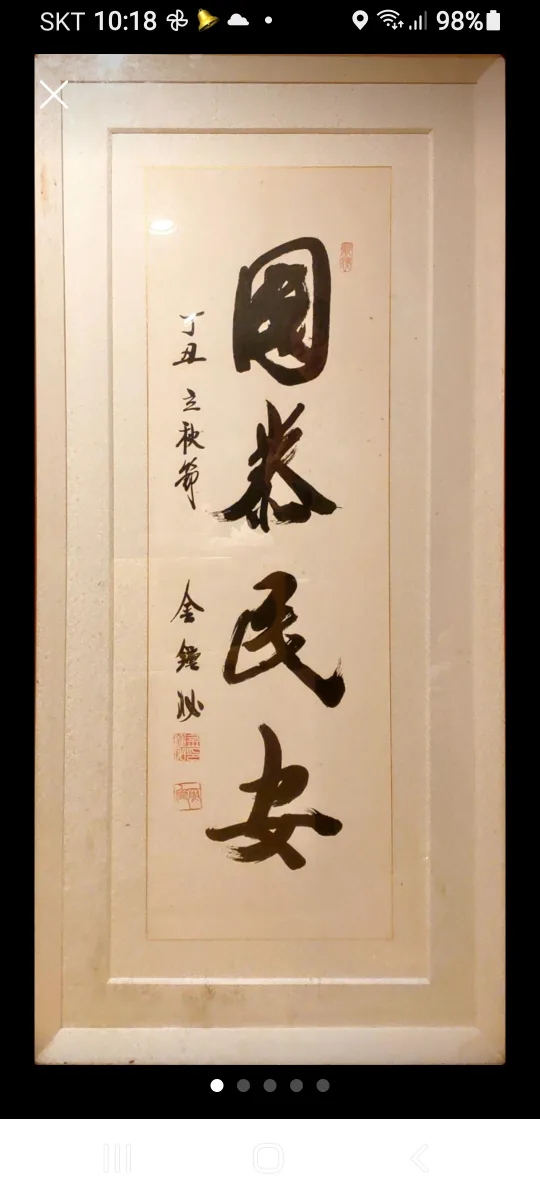 SKT 10:18 98%
國泰民安
丁丑 立秋節
金鍾泌